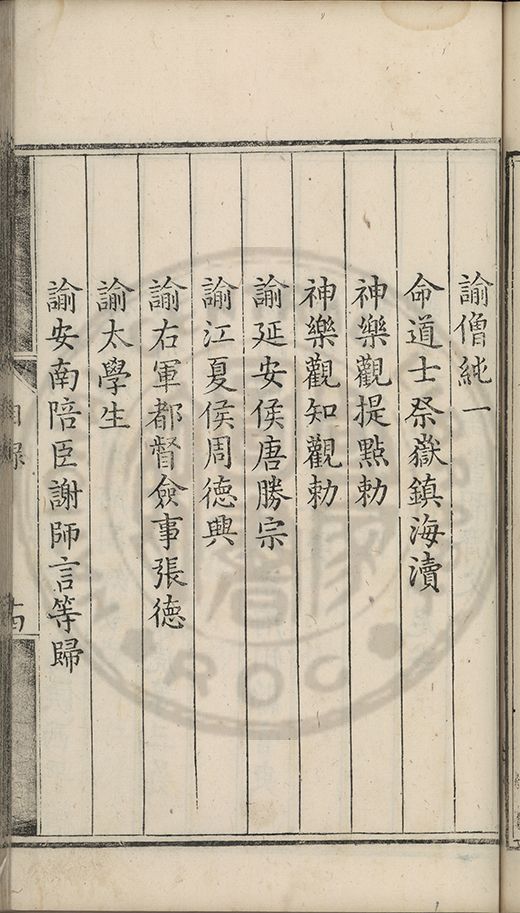 諭僧純一
命道士祭嶽鎮海瀆
神樂觀提點勅
神樂觀知觀勅
諭延安侯唐勝宗
諭江夏侯周德興
諭右軍都督僉事張德
諭太學生
諭安南陪臣謝師言等歸
目錄